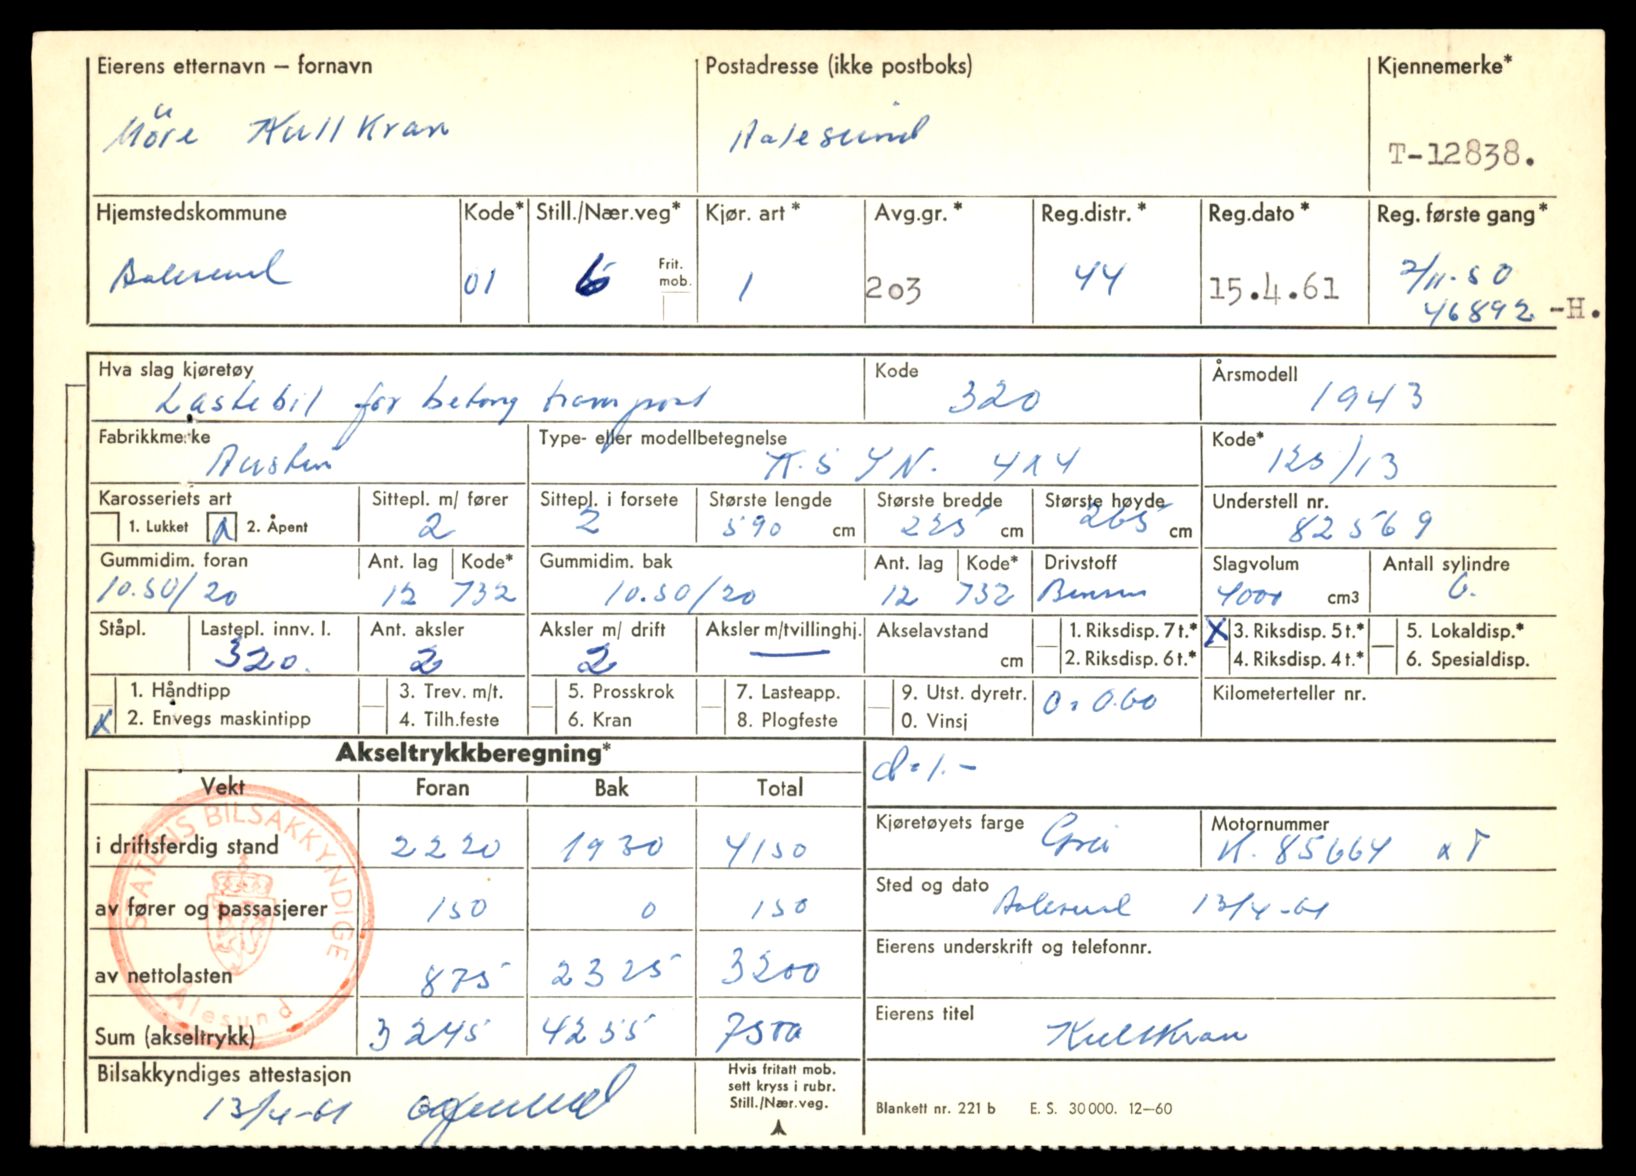 Eierens etternavn – fornavn Postadresse (ikke postboks) Kjennemerke*
Möre Kullkran Aalesund T-12838.
Hjemstedskommune Kode* Still./Nær.veg* Kjør. art * Avg.gr. * Reg.distr. * Reg.dato * Reg. første gang*
Aalesund 01 6 Frit. mob. 1 203 44 15.4.61 2/11-50
46892 -H.
Hva slag kjøretøy Kode Årsmodell
Lastebil for betong transport 320 1943
Fabrikkmerke Type- eller modellbetegnelse Kode*
Austin K.5 YN. 4x4 125/13
Karosseriets art Sittepl. m/ fører Sittepl. i forsete Største lengde Største bredde Største høyde Understell nr.
1. Lukket 2. Åpent 2 2 590 cm 225 cm 265 cm 82569
Gummidim. foran Ant. lag Kode* Gummidim. bak Ant. lag Kode* Drivstoff Slagvolum Antall sylindre
10.50/20 12 732 10.50/20 12 732 Bensin 4000 cm3 6.
Ståpl. Lastepl. innv. l. Ant. aksler Aksler m/ drift Aksler m/tvillinghj. Akselavstand 1. Riksdisp. 7 t.* X 3. Riksdisp. 5 t.* 5. Lokaldisp.*
320. 2 2 — cm 2. Riksdisp. 6 t.* 4. Riksdisp. 4 t.* 6. Spesialdisp.
1. Håndtipp 3. Trev. m/t. 5. Prosskrok 7. Lasteapp. 9. Utst. dyretr. 0 = 0.60 Kilometerteller nr.
X 2. Envegs maskintipp 4. Tilh.feste 6. Kran 8. Plogfeste 0. Vinsj
Akseltrykkberegning*
d = 1.-
Vekt Foran Bak Total
i driftsferdig stand 2220 1930 4150
Kjøretøyets farge Grå Motornummer K. 85664 x T
av fører og passasjerer 150 0 150
Sted og dato Aalesund 13/4-61
av nettolasten 875 2325 3200
Eierens underskrift og telefonnr.
Sum (akseltrykk) 3245 4255 7500
Eierens titel Kullkran
STATENS BILSAKKYNDIGE
Ålesund
Bilsakkyndiges attestasjon
13/4-61
Hvis fritatt mob.
sett kryss i rubr.
Still./Nær.veg.
Blankett nr. 221 b E. S. 30 000. 12–60